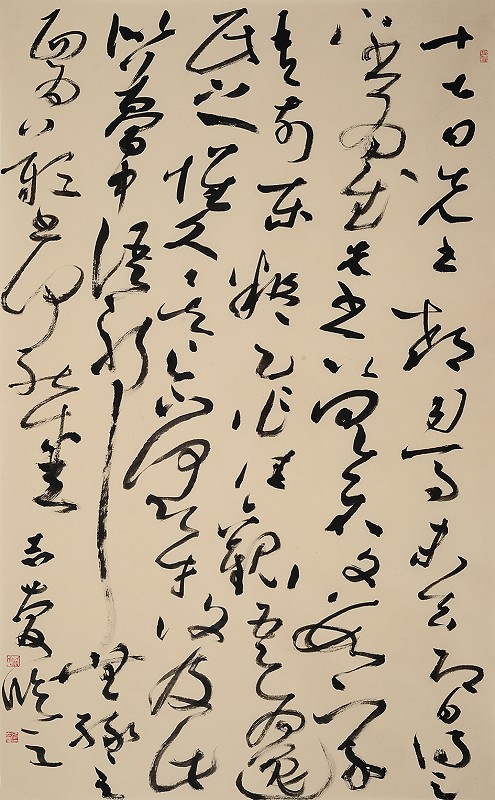 十七日先書郗司馬未去即日得足
下書為慰先書以具示復數字
吾前東粗足作佳觀吾為逸
民之懷久矣足下何以等復及此
似夢中語耶無緣言
面為歎書何能悉
臨之